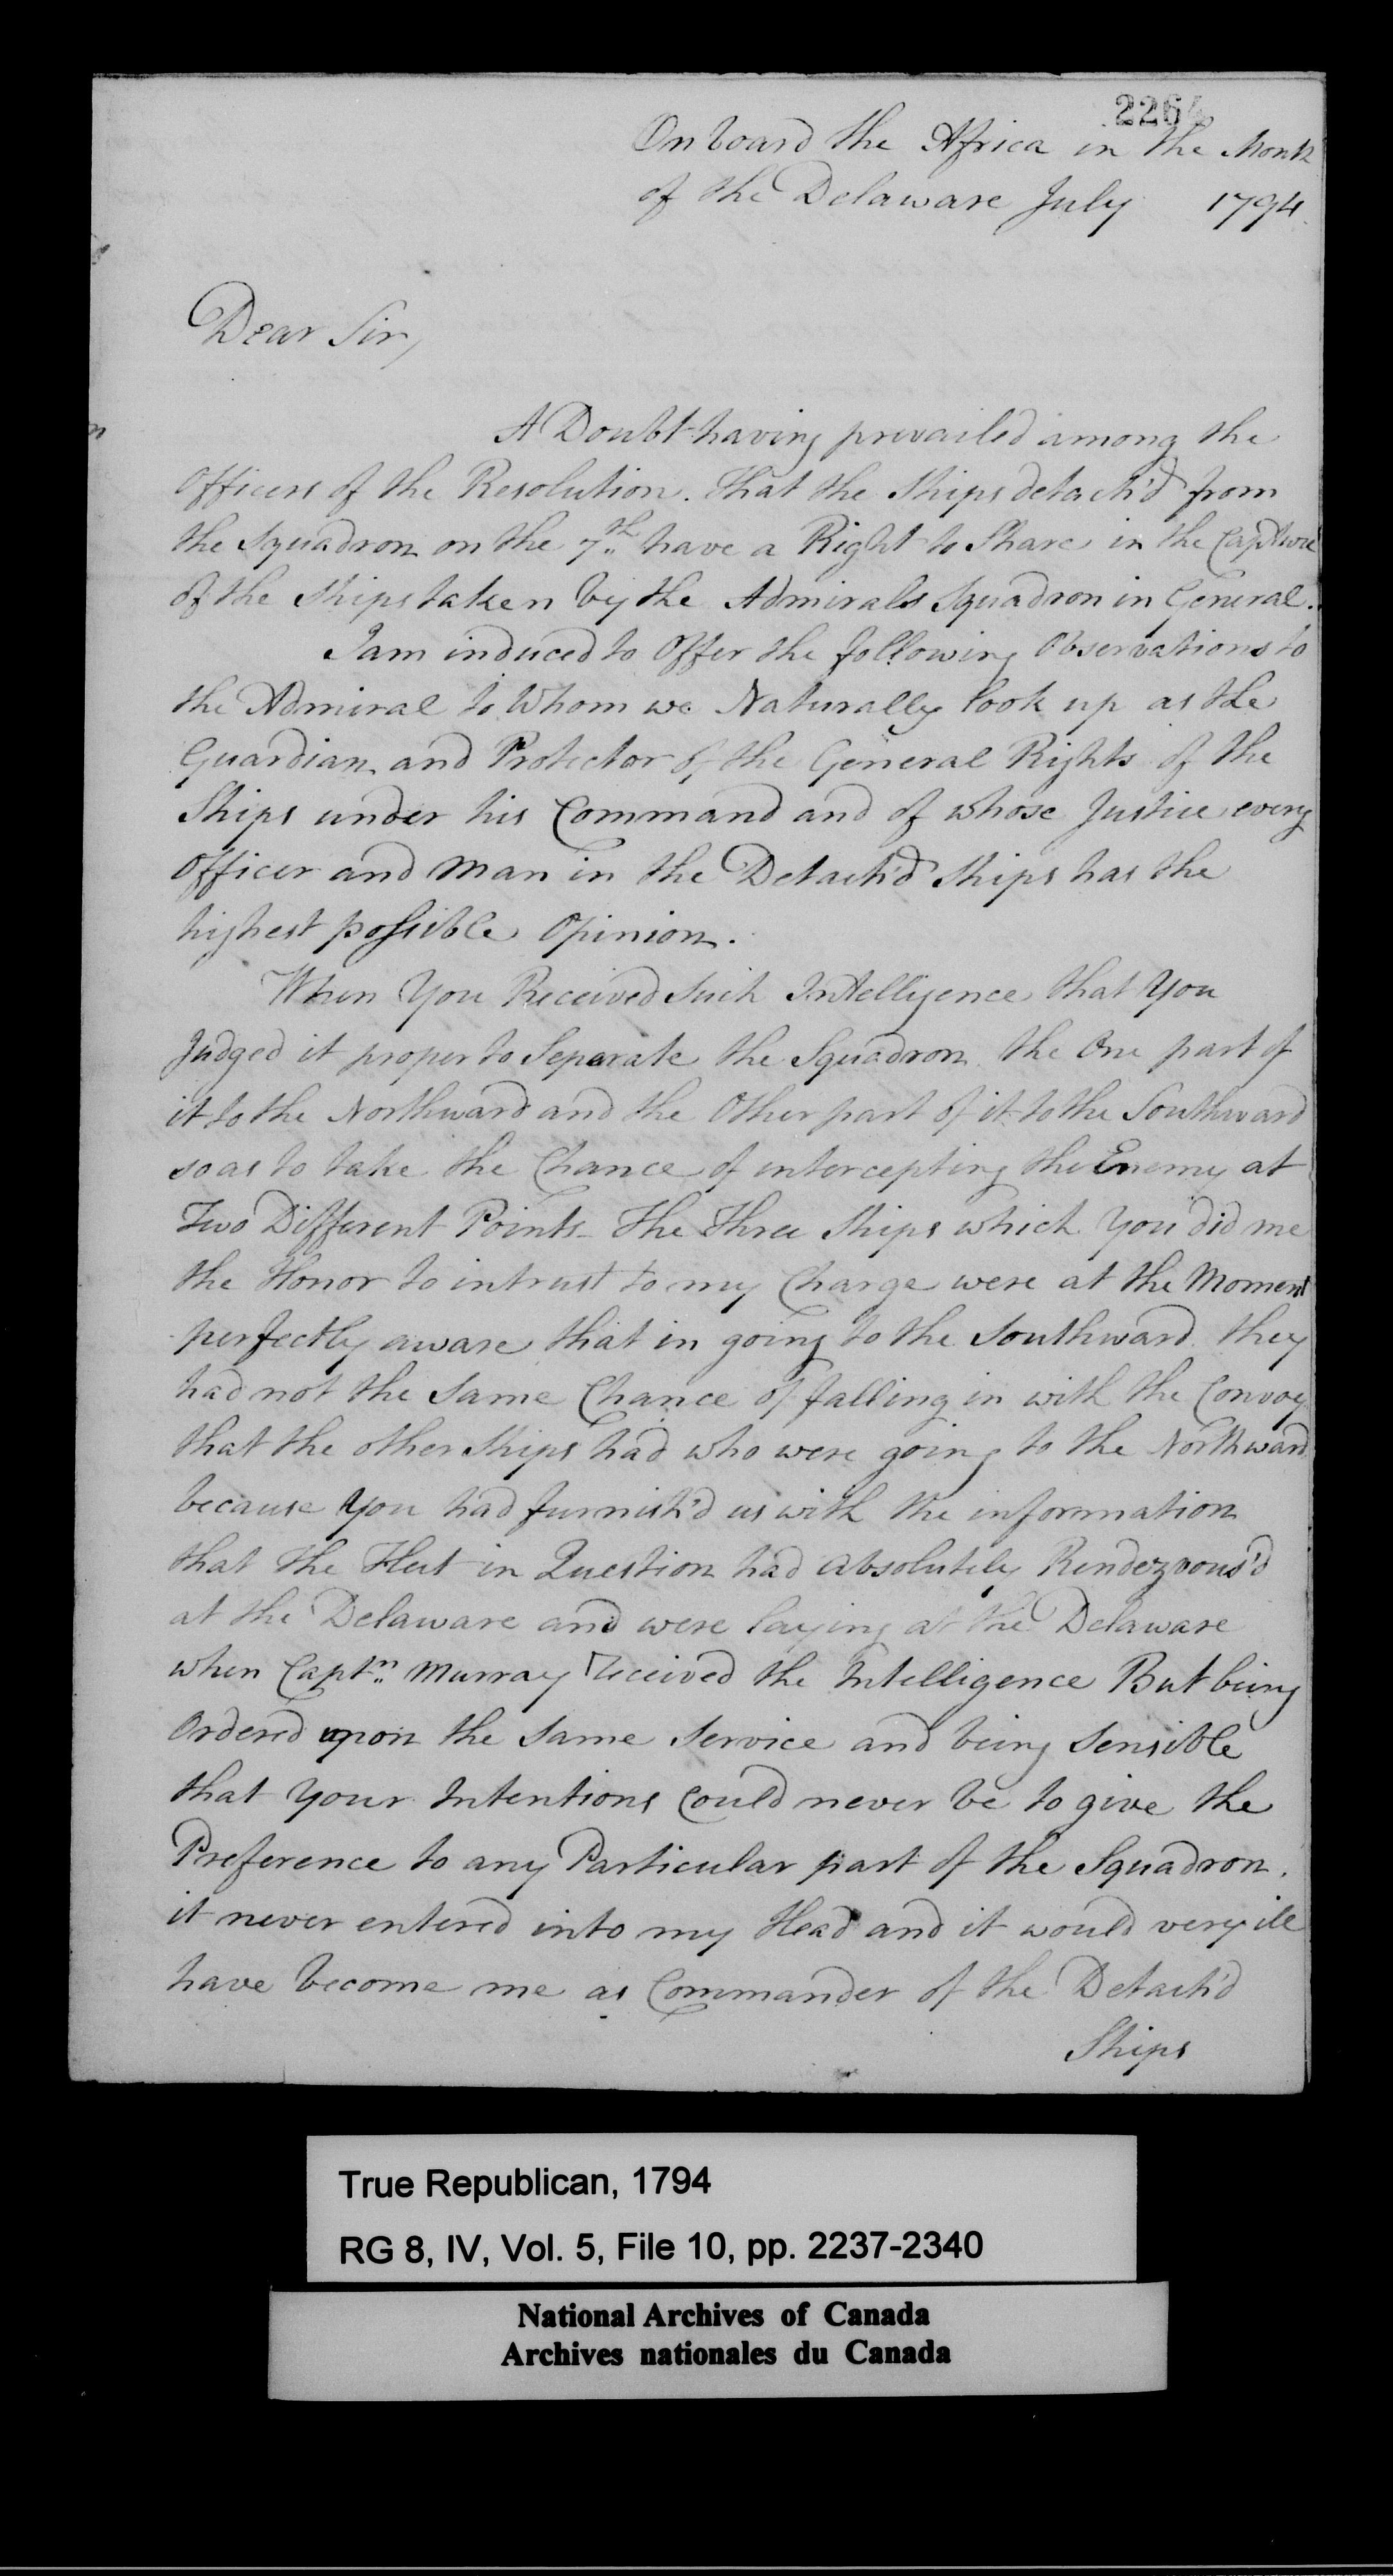 2264
On board the Africa in the Month
of the Delaware July 1794.
Dear Sir,
A Doubt having prevailed among the
Officers of the Resolution. that the Ships detach'd from
the Squadron on the 7th have a Right to Share in the Capture
of the Ships taken by the Admirals Squadron in General.
I am induced to Offer the following Observations to
the Admiral to Whom we Naturally look up as the
Guardian and Protector of the General Rights of the
Ships under his Command and of whose Justice every
Officer and Man in the Detach'd Ships has the
highest possible Opinion.
When You Received Such Intelligence that You
Judged it proper to Separate the Squadron the One part of
it to the Northward and the Other part of it to the Southward
so as to take the Chance of intercepting the Enemy at
Two Different Points - The Three Ships which You did me
the Honor to intrust to my Charge were at the Moment
perfectly aware that in going to the Southward they
had not the Same Chance of falling in with the Convoy
that the other Ships had who were going to the Northward
because You had furnish'd us with the information
that the Fleet in Question had absolutely Rendezvous'd
at the Delaware and were laying at the Delaware
when Captn. Murray received the Intelligence But being
Ordered upon the Same Service and being Sensible
that Your Intentions Could never be to give the
Preference to any Particular part of the Squadron.
it never entered into my Head and it would very ill
have become me as Commander of the Detach'd
Ships
True Republican, 1794
RG 8, IV, Vol. 5, File 10, pp. 2237-2340
National Archives of Canada
Archives nationales du Canada